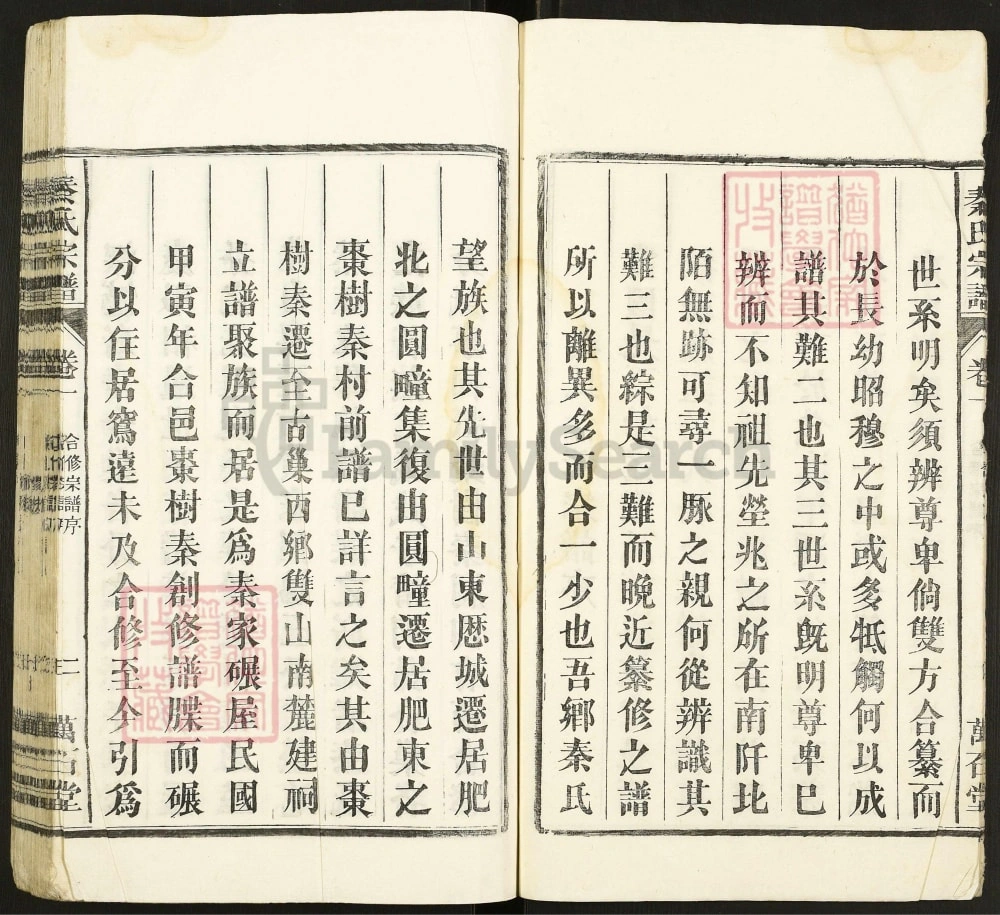 秦氏宗譜
卷一
萬石堂
世系明矣須辨尊卑倘雙方合纂而
於長幼昭穆之中或多牴觸何以成
譜其難二也其三世系旣明尊卑已
辨而不知祖先塋兆之所在南阡北
陌無跡可尋一脈之親何從辨識其
難三也綜是三難而晚近纂修之譜
所以離異多而合一少也吾鄉秦氏
望族也其先世由山東歷城遷居肥
北之圓疃集復由圓疃遷居肥東之
棗樹秦村前譜已詳言之矣其由棗
樹秦遷至古巢西鄉雙山南麓建祠
立譜聚族而居是爲秦家碾屋民國
甲寅年合邑棗樹秦創修譜牒而碾
分以住居窵遠未及合修至今引爲
秦氏宗譜
卷一
合修宗譜序
二
萬石堂
FamilySearch